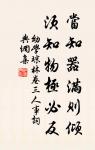 當知器滿則傾
須知物極必反
幼學瓊林卷三人事詞
典網集